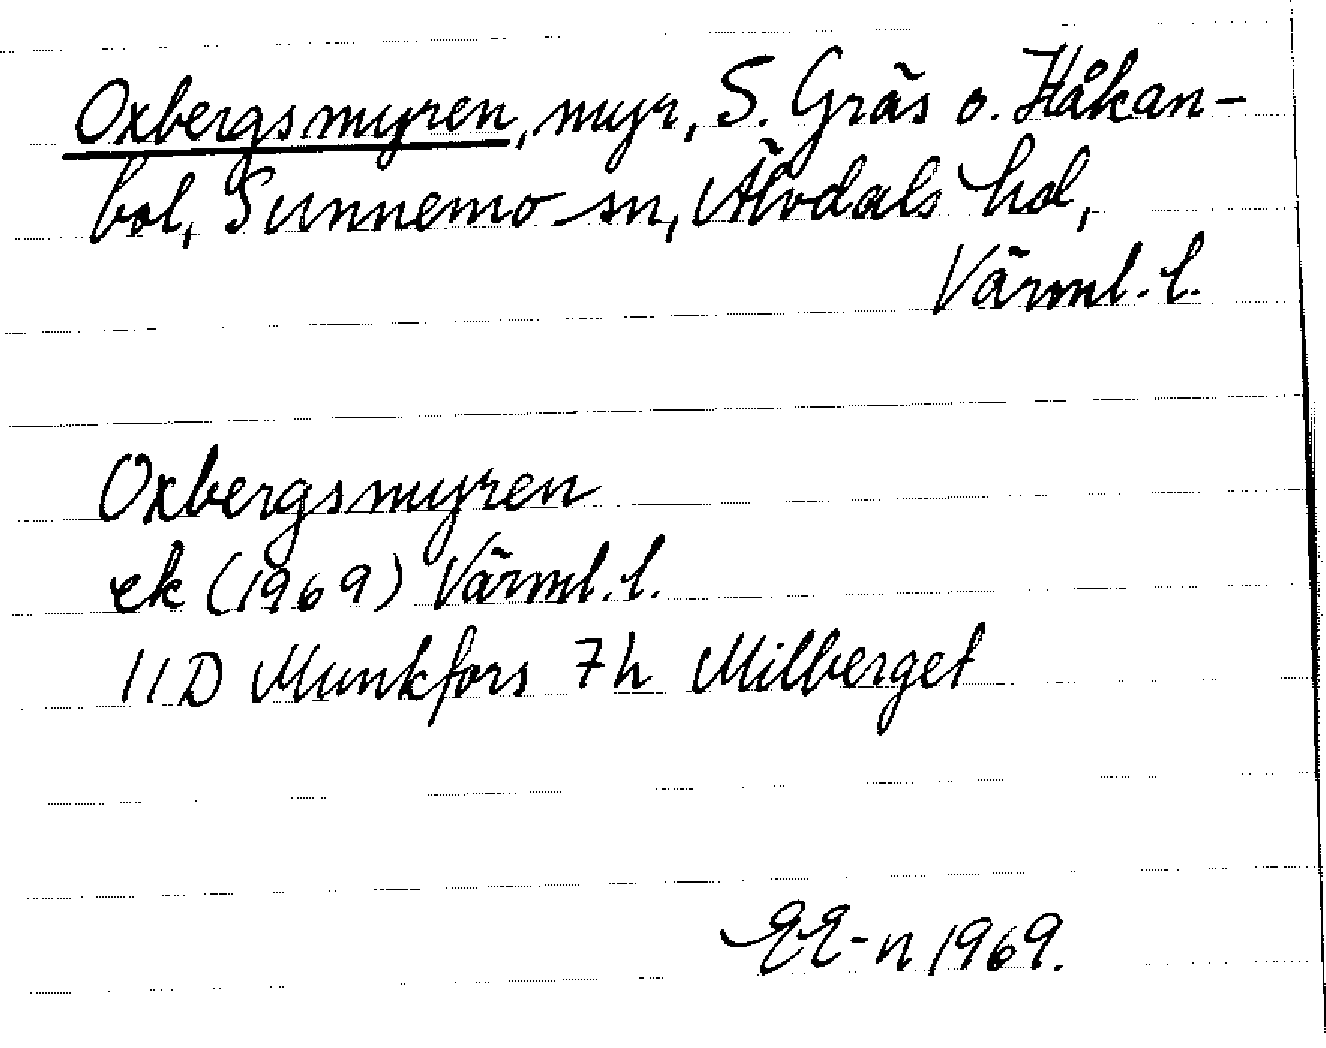 Oxbergsmyren, myr, S. Gräs o. Håkan-
bol, Sunnemo sn, Älvdals hd,
Värml. l.
Oxbergsmyren
ek (1969) Värml. l.
11D Munkfors 7h Milberget
EE-n 1969.